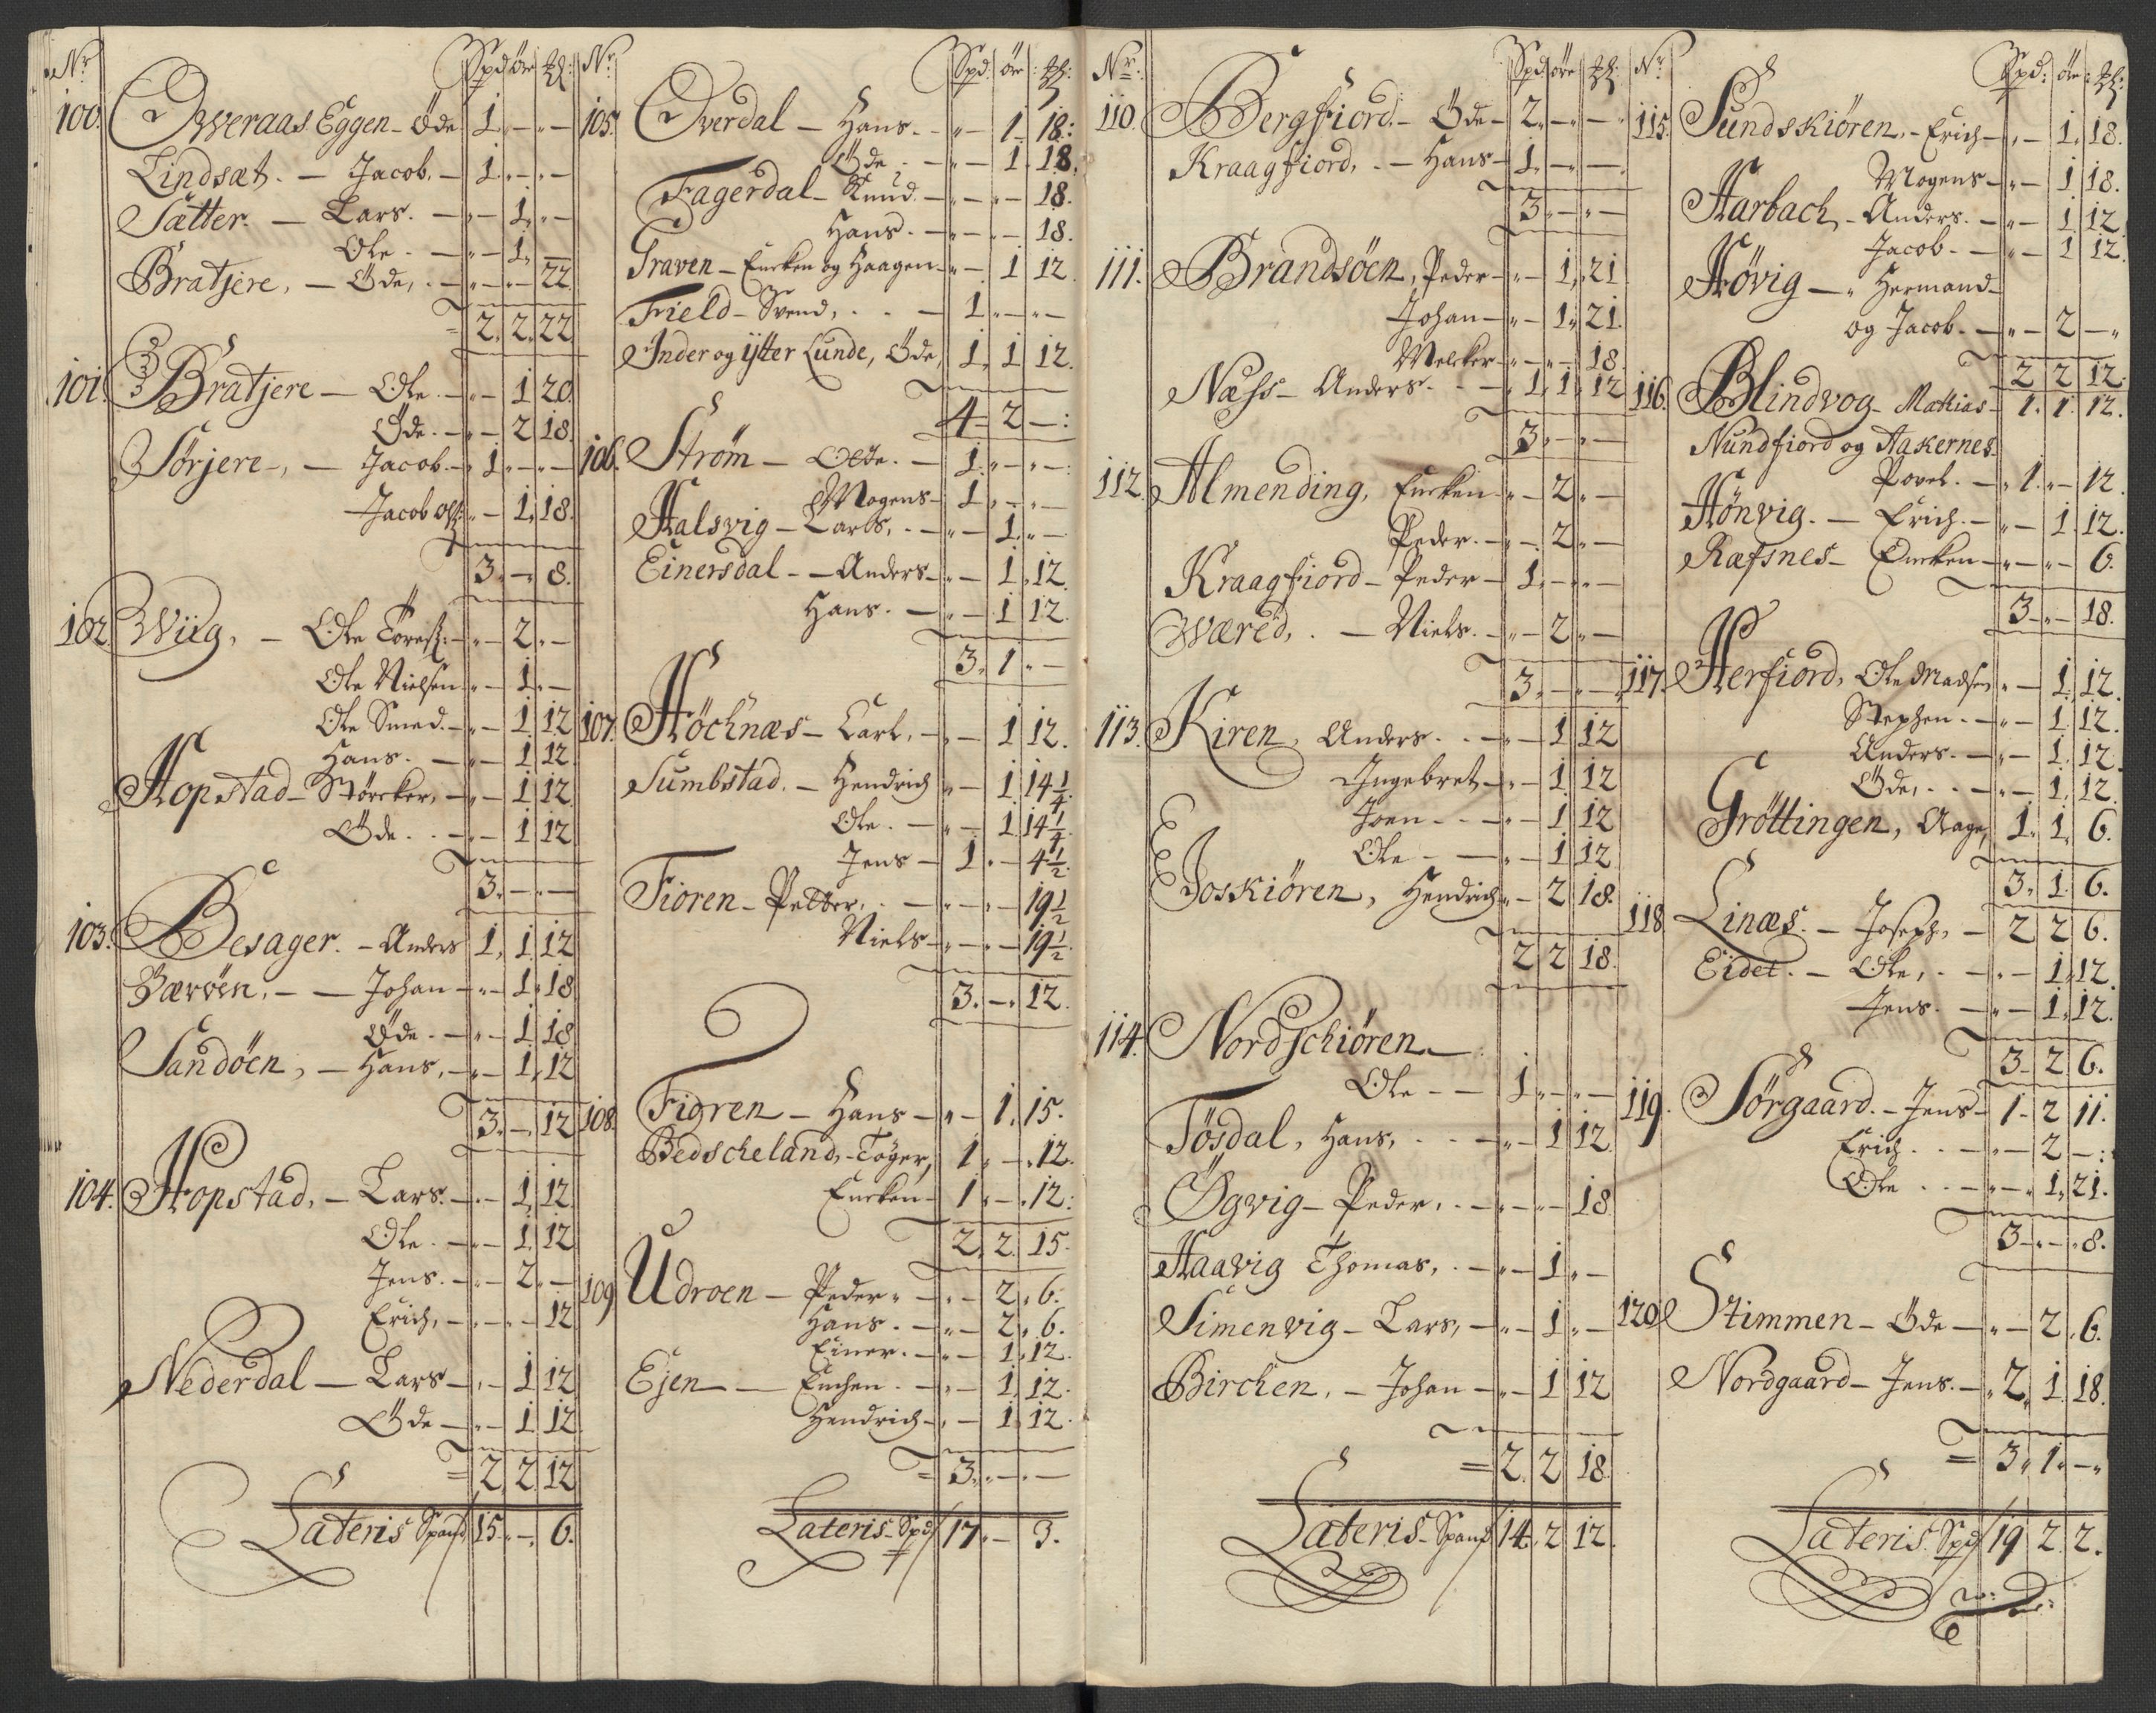 Nr Spd öre ꝉ:
100. Owveraas Eggen - Öde 1. - " -
Lindsæt. - Jacob. - 1. " - " -
Sætter. - Lars. - " - 1. " -
Ole. - " - 1. " -
Bratjere, - Öde, . - " - " - 22
= 2. 2. 22
101. Bratjere - Ole. - " - 1 20.
Öde. - " - 2 18.
Sörjere -, - Jacob. - 1. " - " -
Jacob Ols: " - 1. 18.
3. - " 8.
102. Wiig, - Ole Toress: - " - 2. " -
Ole Nielsen " - 1. " -
Ole Smed. - " - 1. 12
Hans. - " - 1 12.
Hopstad - Störcker, - " - 1 12.
Öde. . - " - 1 12
3. - " - " -
103. Besager. - Anders 1. 1. 12
Væröen, - - Johan - " - 1. 18
Öde. - " - 1. 18
Sandöen, - Hans, - " - 1. 12
3. - " 12
104. Hopstad, - Lars. - " - 1. 12.
Ole. - " - 1. 12
Jens. - " - 2. " -
Erich, - " - " - 12
Nederdal - Lars - " - 1 12
Öde - " - 1. 12
= 2. 2. 12
Lateris Spand 15. " - " 6.
Nr Spd: öre: ꝉ:
105. Overdal - Hans. - " - 1 18:
Öde. - " - 1. 18.
Fagerdal - Knud. - " - " - 18.
Hans. - " - " - 18.
Graven - Encken og Haagen - " - 1 12.
Field - Svend, . . - 1. " - " -
Inder og ytter Lunde, Öde, 1. 1 12.
4 = 2 - :
106. Ström - Olde. - 1. " - " - :
Mogens - 1. " - " -
Halsvig - Lars, . - " - 1. " -
Einersdal - - Anders - " - 1. 12.
Hans. - " - 1 12.
3. 1. " -
107. Höchnæs - Carl, - " - 1 12.
Sumbstad. - Hendrich " - 1. 14 1/4
Ole. - " - 1. 14 1/4
Jens - 1. " - 4 1/2.
Fioren - Petter, . - " - " - 19 1/2
Niels - " - " - 19 1/2.
3. - " 12.
108. Fioren - Hans - " - 1. 15.
Bedscheland, - Töger, 1. " - " 12.
Encken - 1. " - " 12:
2. 2. 15.
109 Udroen - Peder " - " - 2. 6.
Hans. - " - 2. 6.
Einer. - " - 1. 12.
Ejen - Enchen. - " - 1. 12.
Hendrich - " - 1. 12.
= 3. " - " -
Lateris - Spd 17. " - 3.
Nr. Spd öre ꝉ:
110. Bergfiord, - Öde - 2. " - " - "
Kraagfiord, . - Hans - 1. " - " -
3. " - " -
111. Brandsöen, Peder - " - 1. 21
Johan - " - 1. 21.
Melcker - " - " - 18.
Næss - Anders. - - 1. 1. 12
3. " - " -
112. Almending, Encken - " - 2. " -
Peder. - " - 2. " -
Kraagfiord - Peder - 1. " - " -
Wæred, . - Niels. - " - 2. " -
3. " - " -
113. Kiren, Anders. . - " - 1 12
Ingebret - " - 1. 12
Joen - - - " - 1 12
Ole - - " - 1 12
Joskiören, Hendrich " - 2 18.
2 2 18.
114. Nordschiören -
Ole - - 1. " - " -
Tösdal, Hans, . - - " - 1 12
Øgvig - Peder, . - " - " - 18
Haavig Thomas, . - " - 1. " -
Simenvig - Lars, - " - 1. " -
Birchen, - Johan - " - 1 12
= 2. 2 18.
Lateris - Spand 14. 2 12.
Nr Spd: öre: ꝉ:
115. Sundskiören, - Erich - " - 1. 18.
Mogens - " - 1. 18.
Harbach, - Anders. - " - 1. 12
Jacob. - " - 1 12.
Hövig - " Hermand -
og Jacob. - " - 2 - "
2 2 12.
116. Blindvog - Mathias - 1. 1. 12.
Nundfiord og Aakernes
Povel. - " 1. " - 12.
Hönvig. - Erich. - " - 1. 12.
Ræfsnes - Encken - " - " - 6.
3 - " - 18.
117. Herfiord, Ole Madsen " - 1. 12.
Stephen. - " - 1. 12.
Anders. - " - 1. 12
Öde, . . - " - 1. 12.
Gröttingen, Aage, 1. 1. 6.
3. 1. 6.
118. Linæs. - Joseph, - 2 2 6.
Eidet. - Ole, . - " - 1. 12.
Jens. - " - 1. 12.
3 - 2 6.
119. Sörgaard. - Jens - 1 - 2 11.
Erich. . - " - 2 - :
Ole . . - " - 1. 21.
3 - " - " 8.
120 Stimmen - Öde - " - 2. 6.
Nordgaard - Jens. - " 2. 1. 18.
= 3. 1. - "
Lateris. Spd 19 2 2.